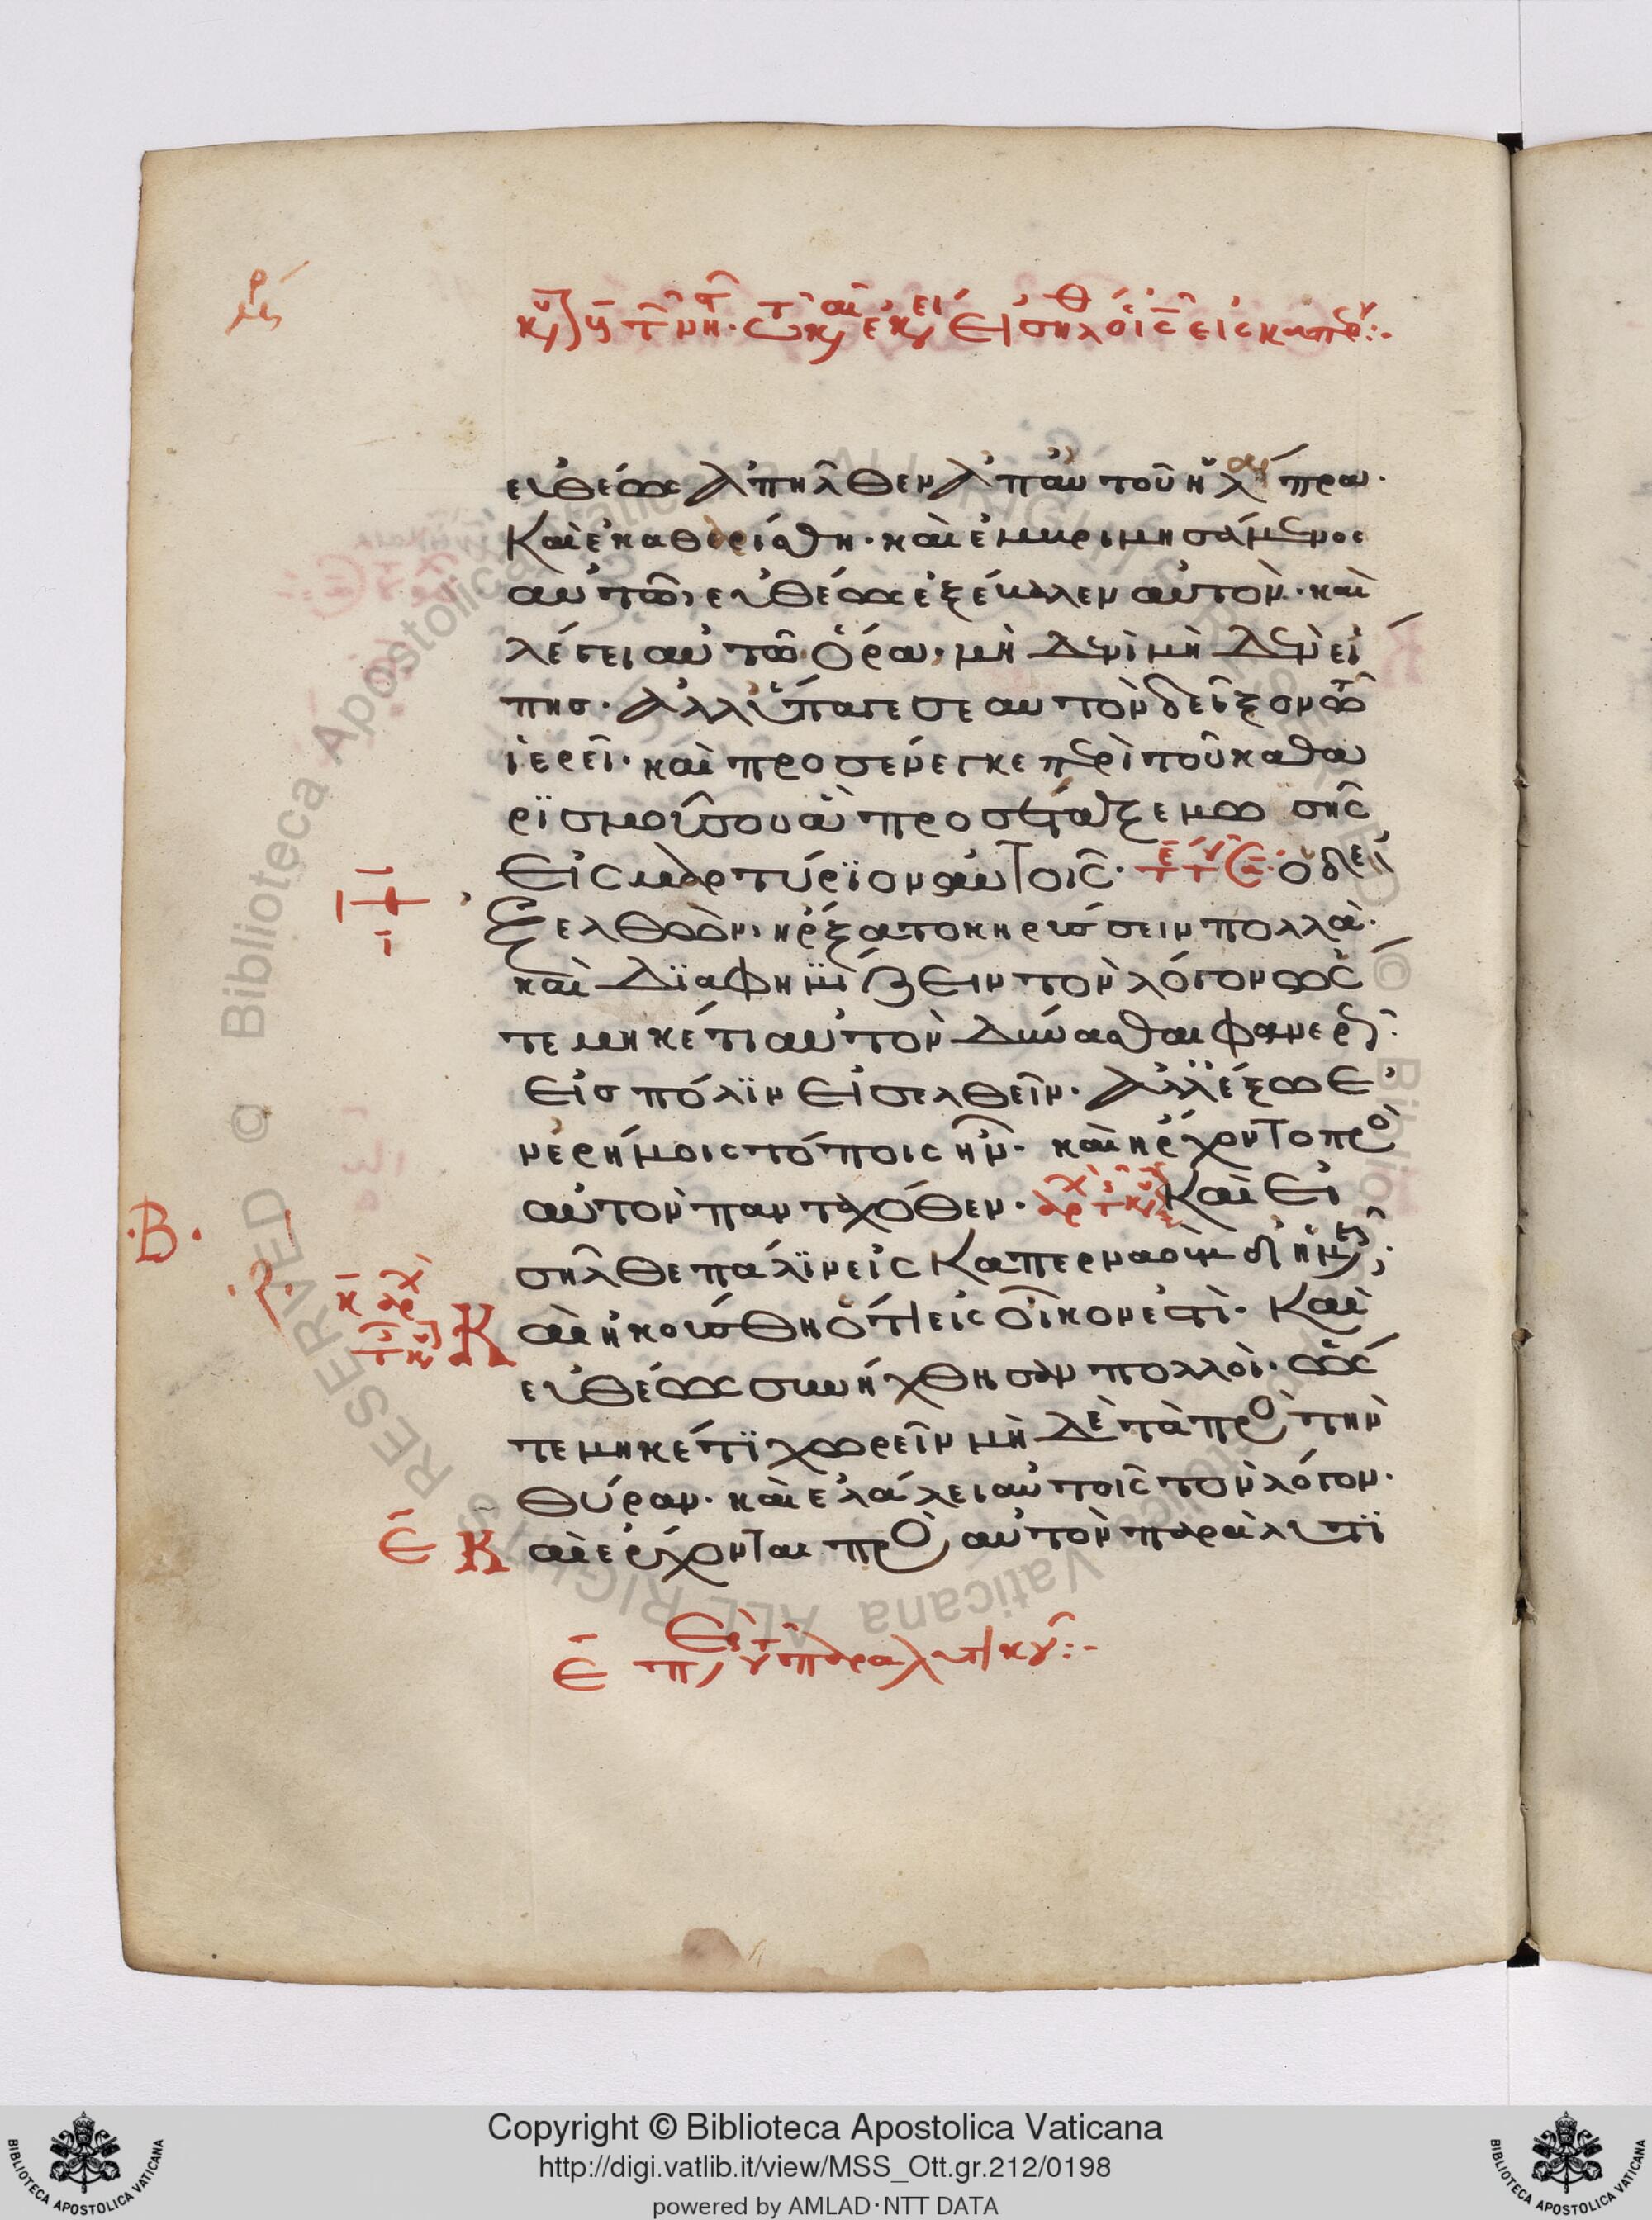 εὐθέως ἀπῆλθεν ἀπ αὐτοῦ ἡ λέπρα·
Καὶ ἐκαθερίσθη· καὶ ἐμβριμησάμενος
αὐτῶ, εὐθέως ἐξέβαλεν αὐτὸν· καὶ
λέγει αὐτῶ· ὅρα· μὴ δενὶ μὴ δὲν εἴ
πησ· ἀλλ ὕπαγε σε αυτὸν δεῖξον τῶ
ἱερεῖ· καὶ προσένεγκε περὶ τοῦ καθα
ρϊσμοῦ σου ἃ προσέταξε μωσῆς
Εἰς μαρτύρϊον αὐτοῖς· ὁ δὲ
ἐξελθὼν, ἤρξατο κηρύσσειν πολλὰ·
καὶ Δϊαφημΐζειν τὸν λόγον ὥς
τε μηκέτι αὐτὸν Δύνασθαι φανερῶς
εἰσ πόλϊν εἰσελθεῖν· ἀλλ ἔξω ἐ
ν ἐρήμοις τόποις ἦν· καὶ ἤρχοντο πρὸς
αὐτὸν πανταχόθεν· Καὶ Εἰ
σῆλθε πάλϊν εἰς Καπερναοὺμ δι ἡμερῶν·
Κ αὶ ἠκούσθη ὅτι εἰς οἶκον ἐστὶ· Καὶ
εὐθέως συνήχθησαν πολλοὶ· ὥς
τε μηκέτϊ χωρεῖν μὴ Δὲ τὰ πρὸς τὴν
Θύραν· καὶ ἐλάλει αὐτοῖς τὸν λόγον·
Ε Κ αὶ ἔρχονται πρὸς αὐτὸν παραλυτϊ
Ε Περὶ τοῦ παραλυτικοῦ:-
·Β·
Copyright © Biblioteca Apostolica Vaticana
http://digi.vatlib.it/view/MSS_Ott.gr.212/0198
powered by AMLAD·NTT DATA
BIBLIOTECA APOSTOLICA VATICANA
BIBLIOTECA APOSTOLICA VATICANA